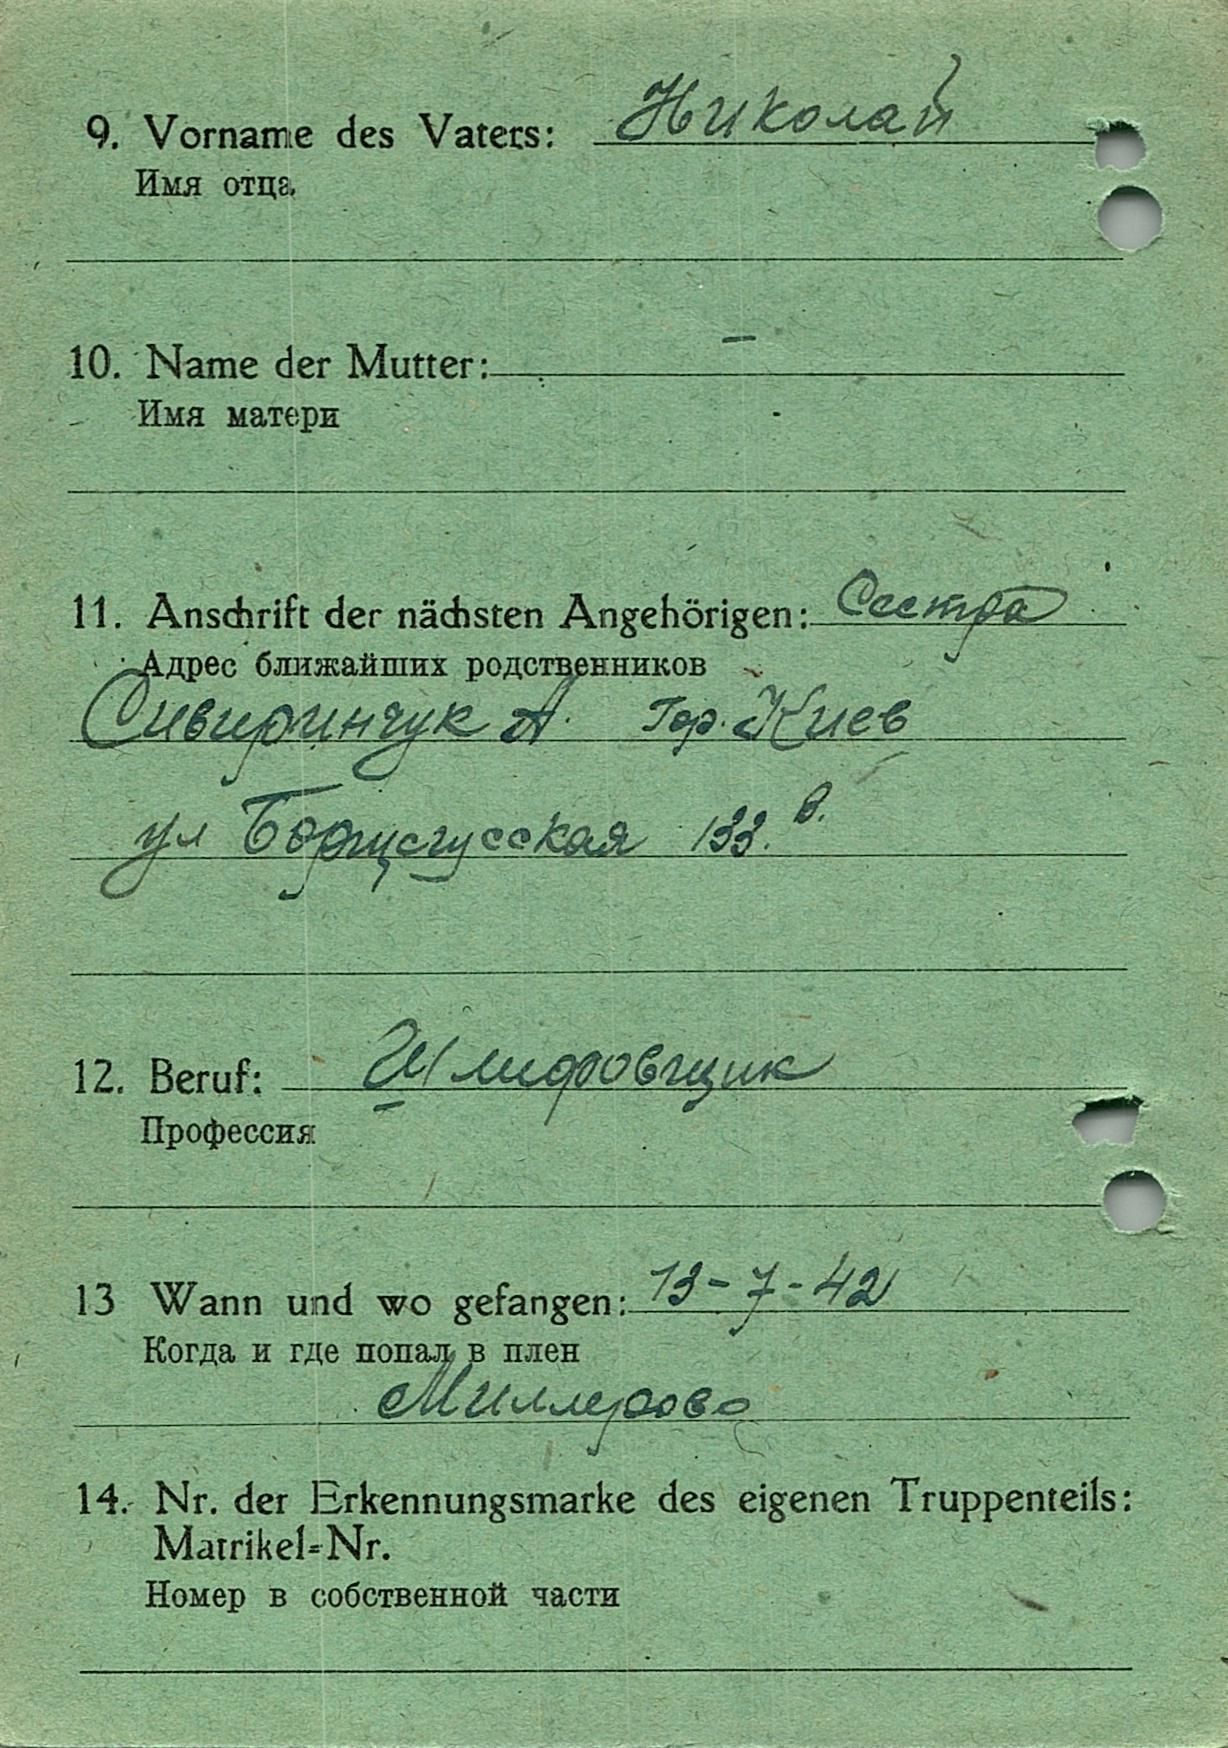 9. Vorname des Vaters: Николай
Имя отца
10. Name der Mutter: –
Имя матери
11. Anschrift der nächsten Angehörigen: Сестра
Адрес ближайших родственников
Сивиринчук А. Гор. Киев
ул 133. в.
12. Beruf: Шлифовщик
Профессия
13 Wann und wo gefangen: 13-7-42
Когда и где попал в плен
Миллерово
14. Nr. der Erkennungsmarke des eigenen Truppenteils:
Matrikel-Nr.
Номер в собственной части